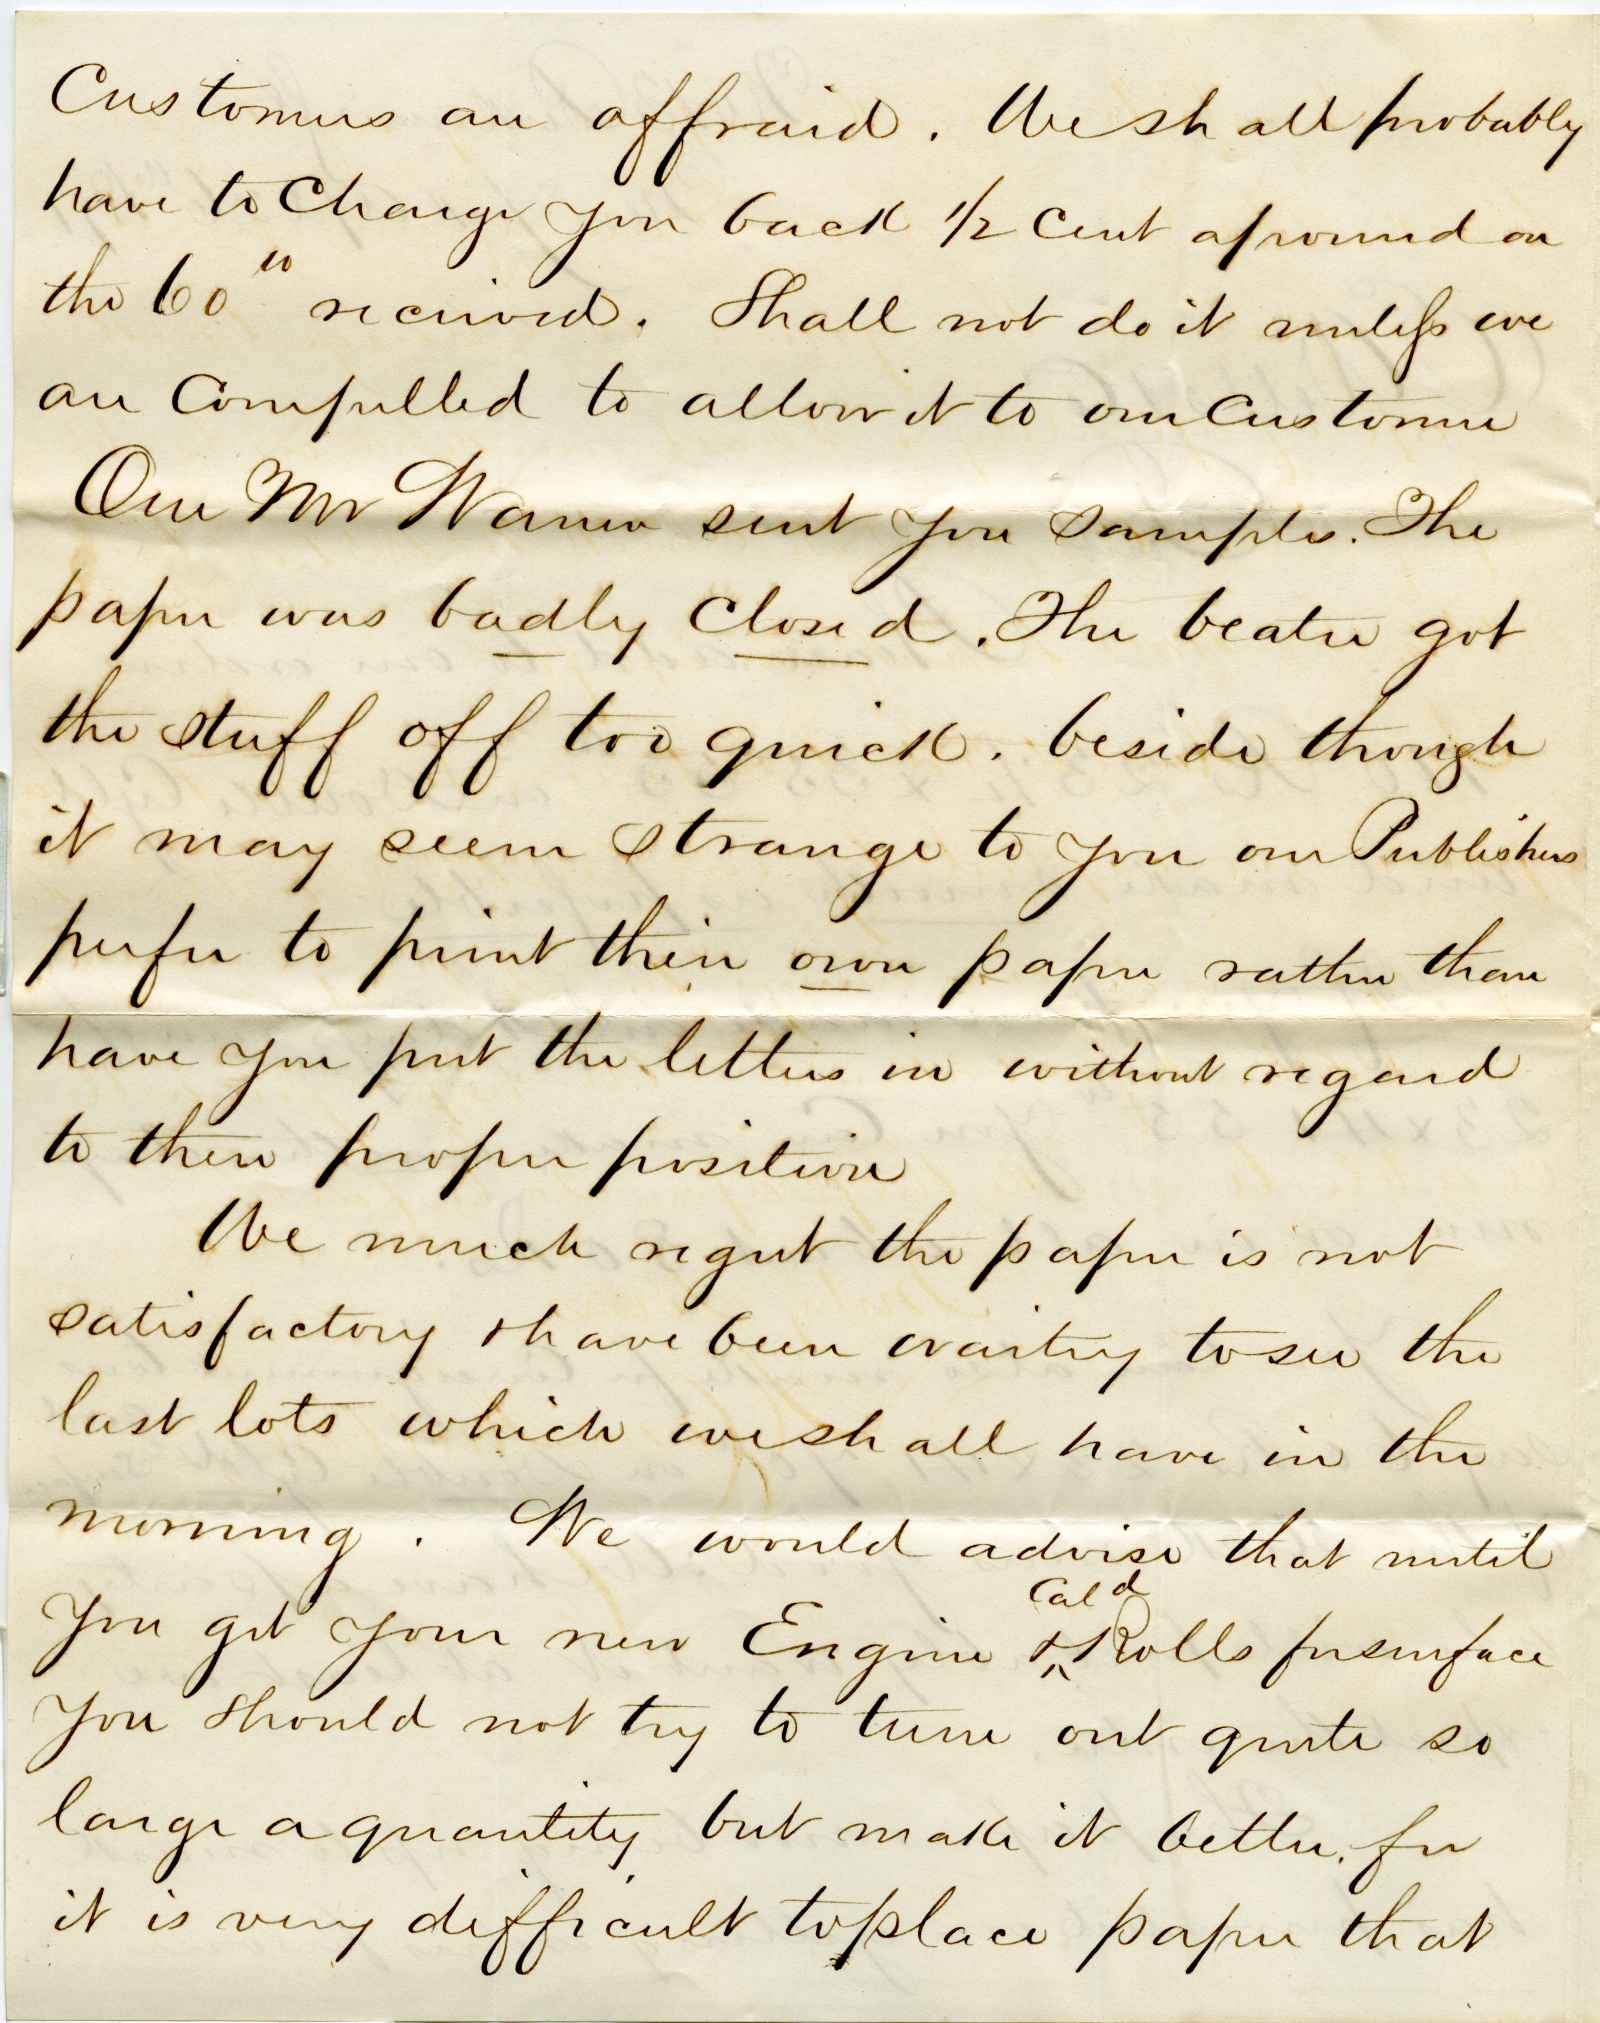 Customers are affraid. We shall probably
have to Charge you back 1/2 Cent a pound on
the 60" received. Shall not do it unless we
are Compelled to allow it to our Customer
Our Mr Warner sent you samples. The
paper was badly closed. The beater got
the stuff off too quick. beside though
it may seem strange to you our Publishers
prefer to print their own paper rather than
have you put the letters in without regard
to their proper position
We much regret the paper is not
satisfactory & have been waiting to see the
last lots which we shall have in the
morning. We would advise that until
you get your new Engine & Cald Rolls for surface
you should not try to turn out quite so
large a quantity but make it better. for
it is very difficult to place paper that